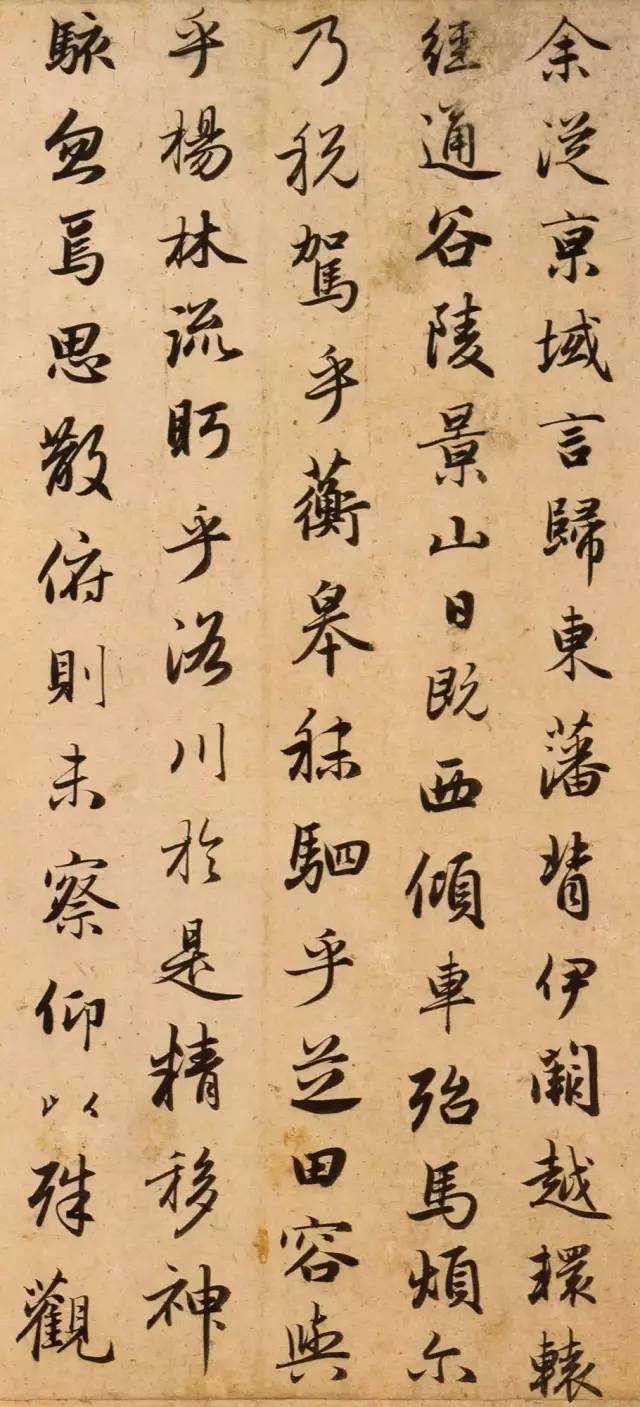 余從京域言歸東藩背伊闕越轘轅
經通谷陵景山日既西傾車殆馬煩尔
乃税駕乎蘅皋秣駟乎芝田容與
乎楊林流眄乎洛川於是精移神
駭忽焉思散俯則未察仰以殊觀